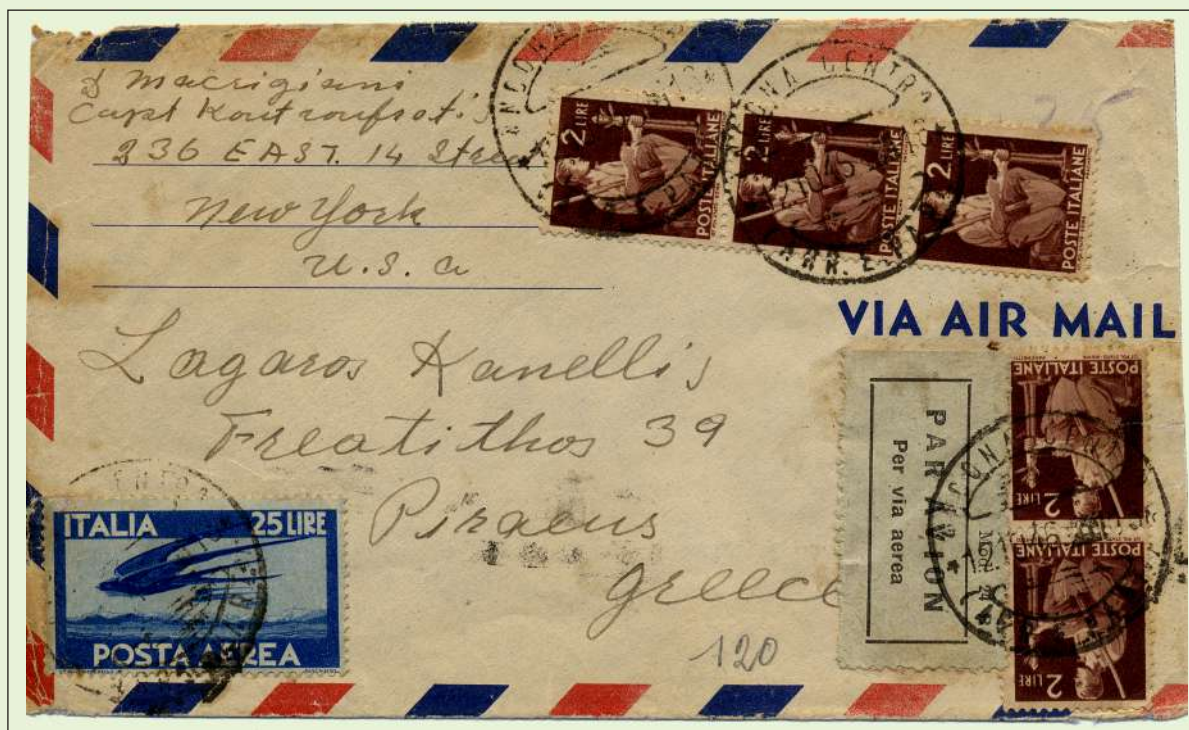 S Macrigiani
Capt
236 EAST. 14 Street
New York
U.S.a
2 LIRE
POSTE ITALIANE
2 LIRE
POSTE ITALIANE
2 LIRE
POSTE ITALIANE
ANCONA CENTRO
VIA AIR MAIL
Lagaros Kanellis
Freatithos 39
Piraeus
Greece
120
PAR AVION
Per via aerea
POSTE ITALIANE
2 LIRE
POSTE ITALIANE
2 LIRE
ITALIA 25 LIRE
POSTA AEREA